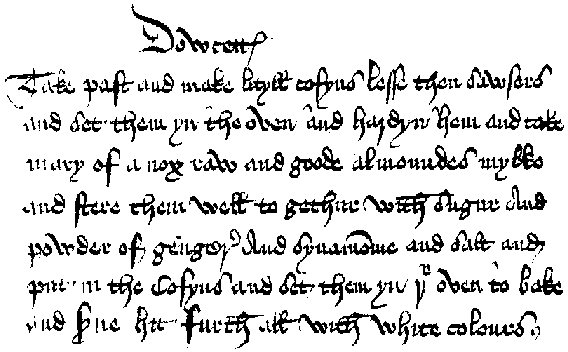 Dowcett
Take past and make lityll cofyns lesse then sawsers
and set them yn the oven and hardyn hem and take
mary of a nox raw and goode almondes mylke
and stere them well to gethur with sugur And
powder of gengyr And synamome and salt and
put in the Cofyns and set them yn þe oven to bake
and serve hit furth all with white colours